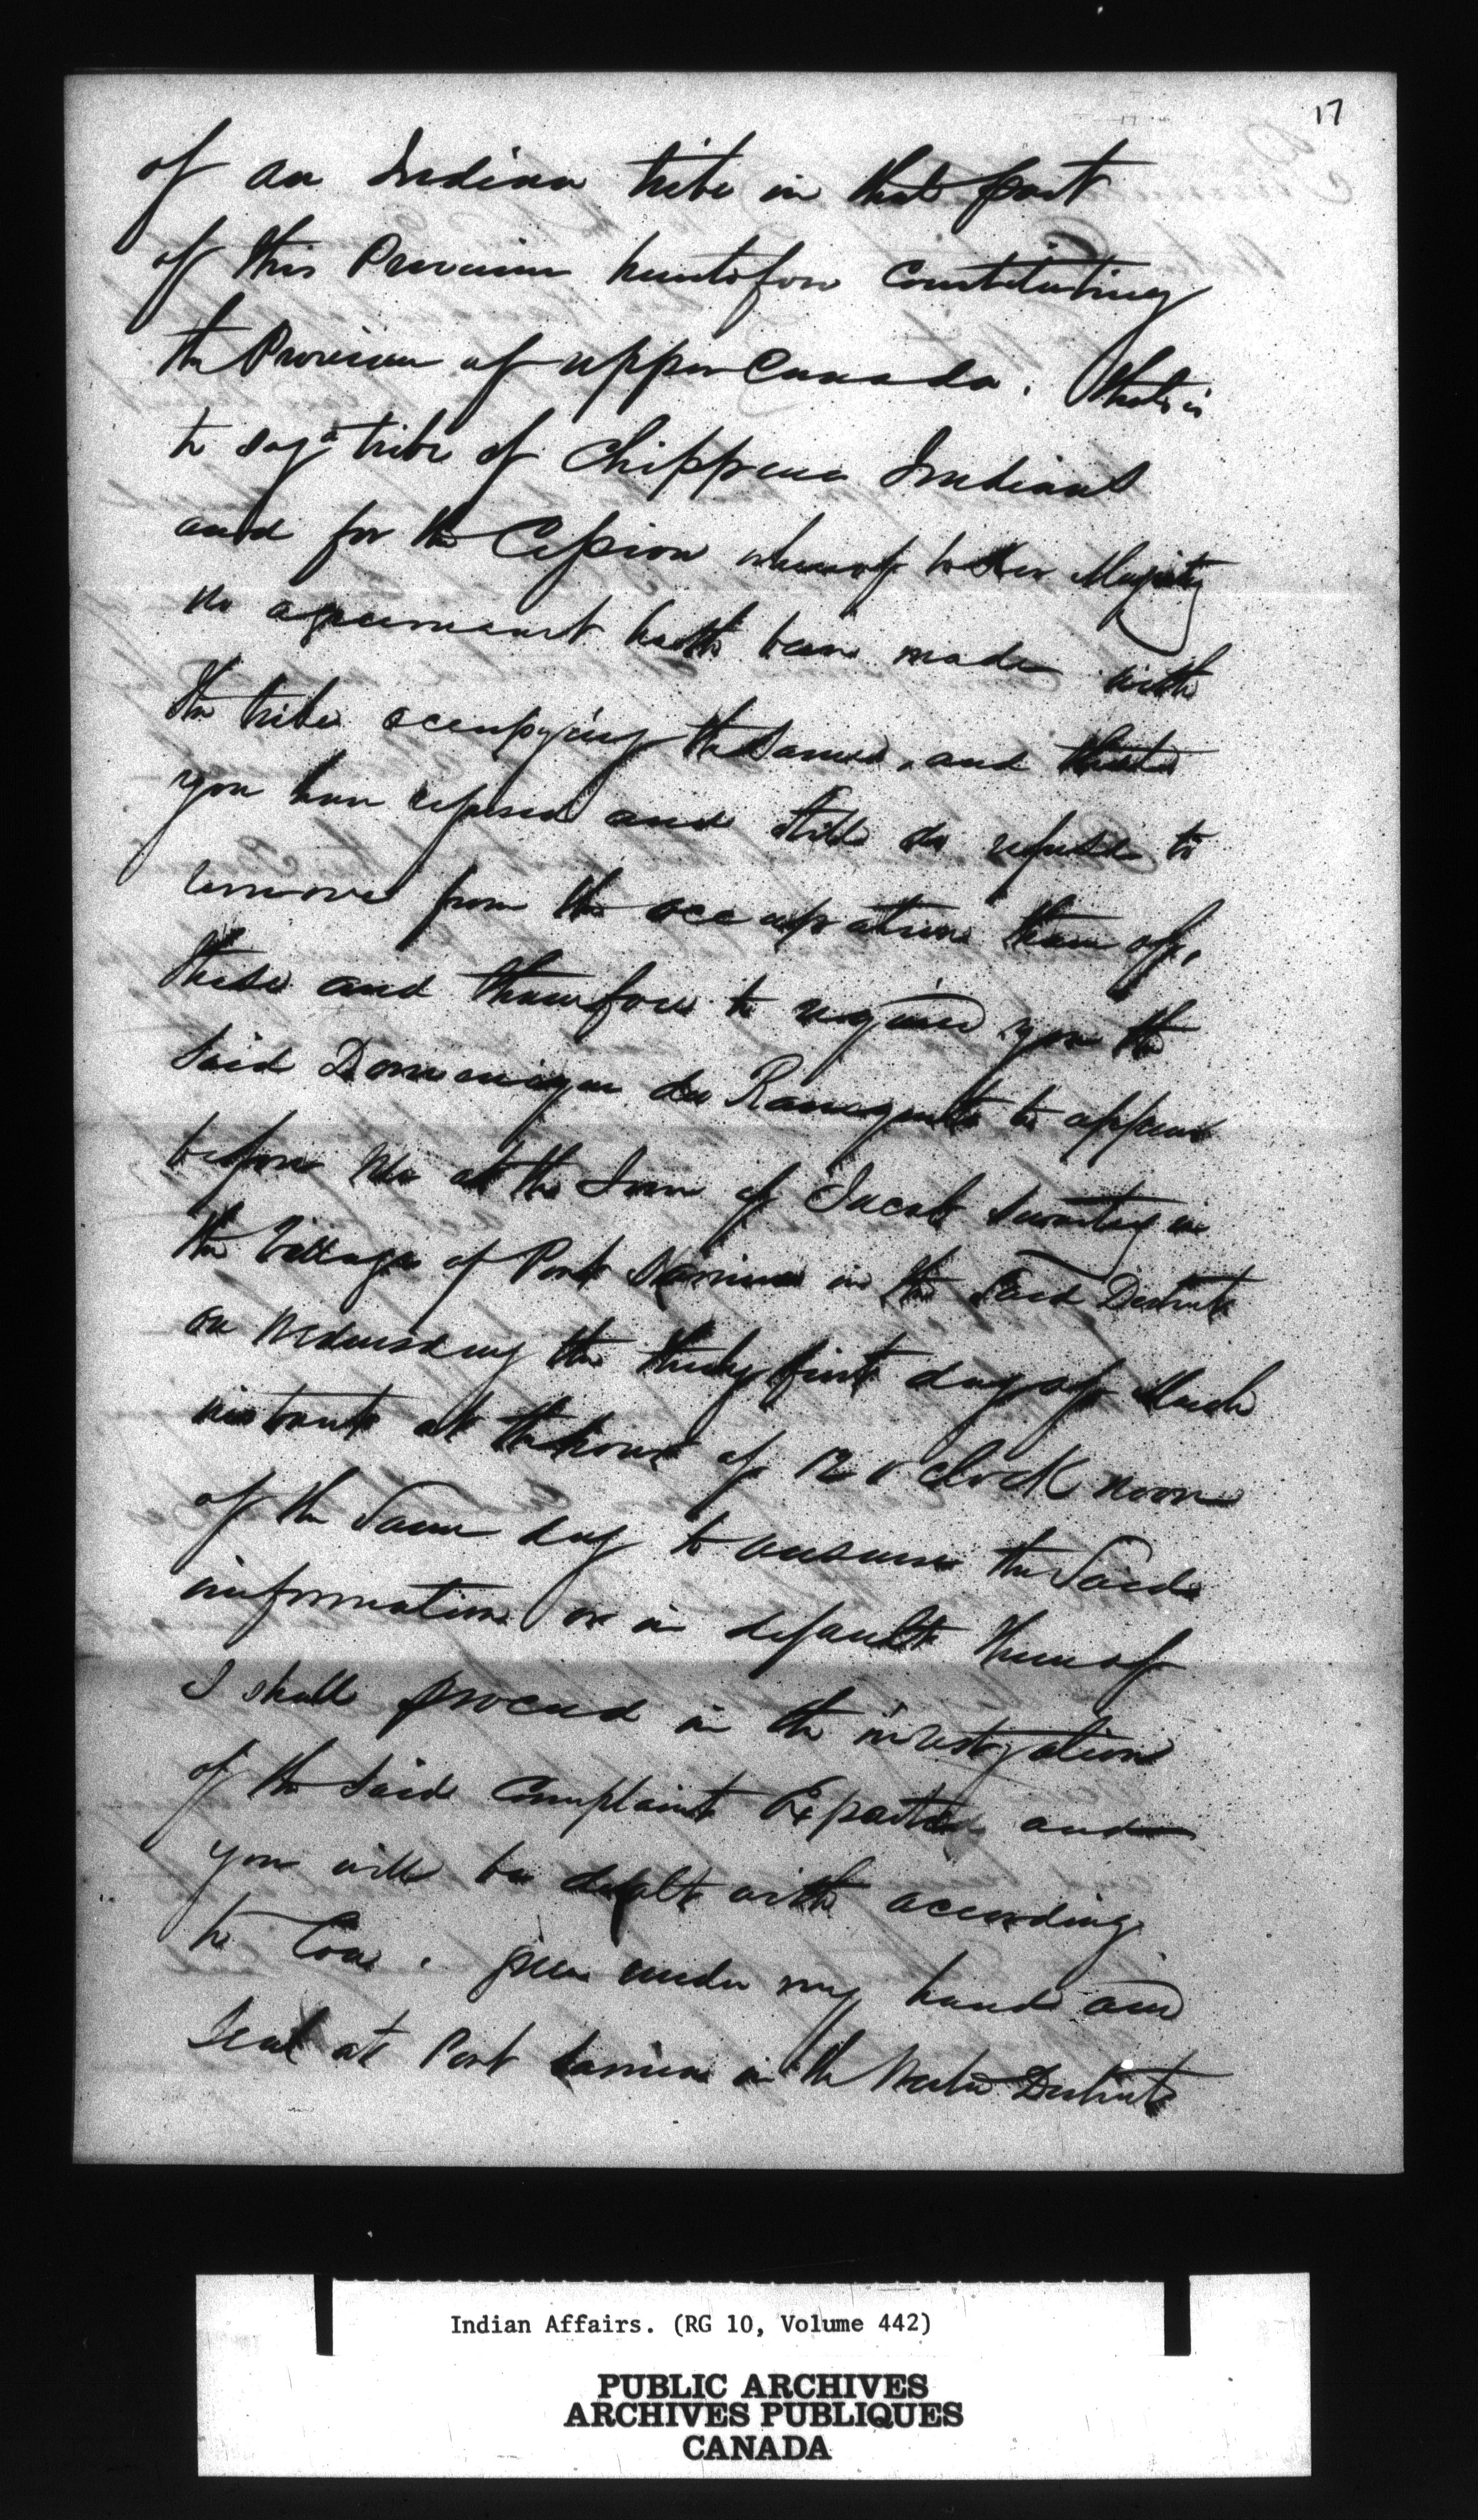 17
of an Indian tribe in that part
of this Province heretofore Constituting
the Province of upper Canada. that is
to say a tribe of Chippewa Indians
and for the Cession whereof to Her Majesty
no agreement hath been made with
the tribe occupying the same, and that
you have refused and still do refuse to
remove from the occupation thereof,
these and therefore to require you the
said Dominique to appear
before Me at the Inn of Jacob in
the Village of Port Sarnia in the said District
on Wednesday the thirty first day of March
instant at the hour of 12 o'clock noon
of the same day to answer the said
information or in default thereof
I shall proceed in the investigation
of the said Complaint Exparte and
you will be dealt with according
to Law. given under my hand and
Seal at Port Sarnia in the Western District
Indian Affairs. (RG 10, Volume 442)
PUBLIC ARCHIVES
ARCHIVES PUBLIQUES
CANADA